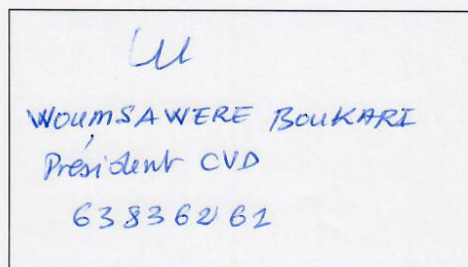 Lu
WOUMSAWERE BOUKARI
Président CVD
63836261